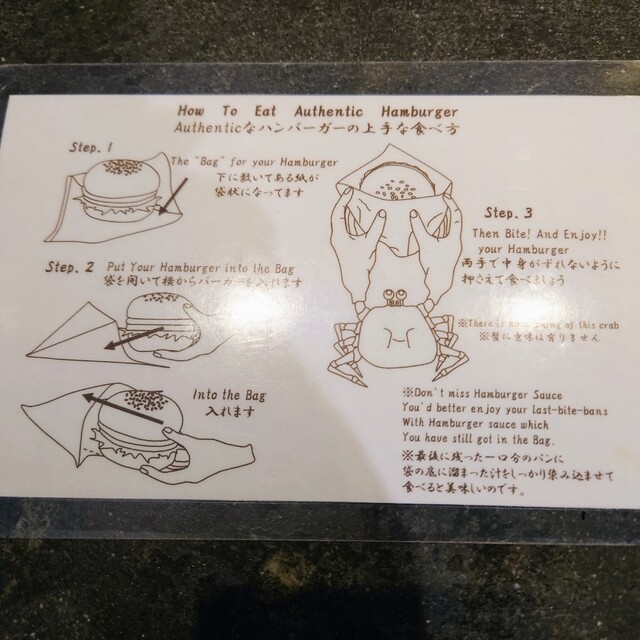 How To Eat Authentic Hamburger
Authenticなハンバーガーの上手な食べ方
Step. 1
The "Bag" for your Hamburger
下に敷いてある紙が
袋状になってます
Step. 2
Put Your Hamburger into the Bag
袋を開いて横からバーガーを入れます
Into the Bag
入れます
Step. 3
Then Bite! And Enjoy!!
your Hamburger
両手で中身がずれないように
押さえて食べましょう
※There is of this crab
※蟹に意味は有りません
※Don't miss Hamburger Sauce
You'd better enjoy your last-bite-bans
With Hamburger sauce which
You have still got in the Bag.
※最後に残った一口分のパンに
袋の底に溜まった汁をしっかり染み込ませて
食べると美味しいのです。